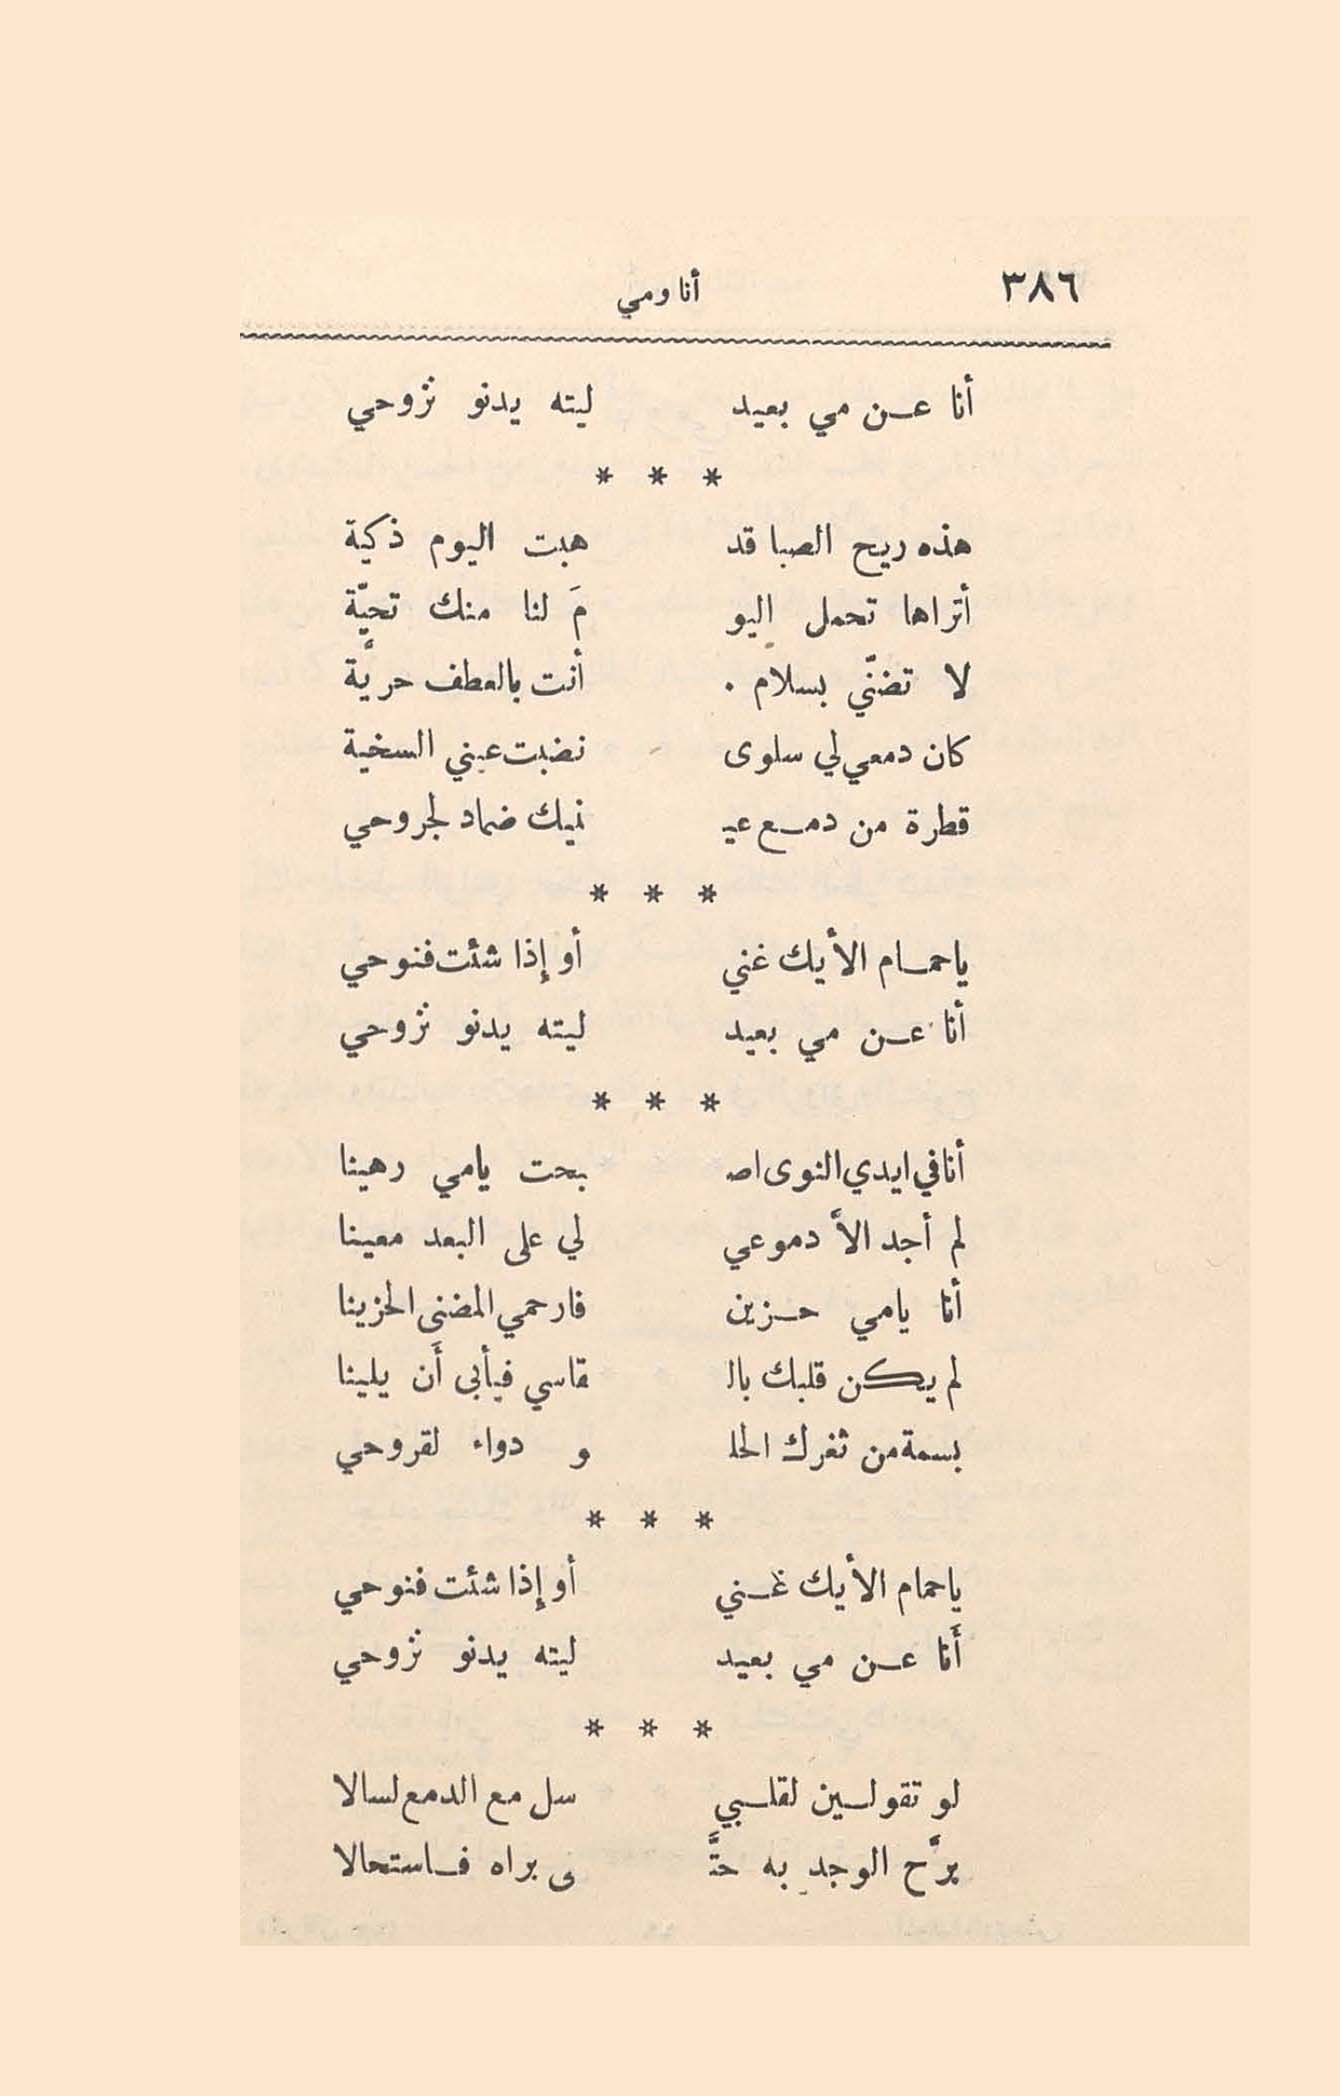 ٣٨٦ أنا ومي
أنا عـن مي بعيد ليته يدنو نزوحي
* * *
هذه ريح الصبا قد هبت اليوم ذكية
أتراها تحمل اليو مَ لنا منك تحيّة
لا تضنّي بسلام . أنت بالعطف حريَّة
كان دمعي لي سلوى نضبت عيني السخية
قطرة من دمـع عيـ نيك ضماد لجروحي
* * *
ياحمـام الأيك غني أو إذا شئت فنوحي
أنا عـن مي بعيد ليته يدنو نزوحي
* * *
أنا في ايدي النوى اصـ بحت يامي رهينا
لم أجد الاَّ دموعي لي على البعد معينا
أنا يامي حـزين فارحمي المضنى الحزينا
لم يكن قلبك بالـ قاسي فيأبى أَن يلينا
بسمة من ثغرك الحلـ و دواء لقروحي
* * *
ياحمام الأيك غـني أو إذا شئت فنوحي
أَنا عـن مي بعيد ليته يدنو نزوحي
* * *
لو تقولـين لقلـبي سل مع الدمع لسالا
برَّح الوجد به حتَّـ ى براه فـاستحالا